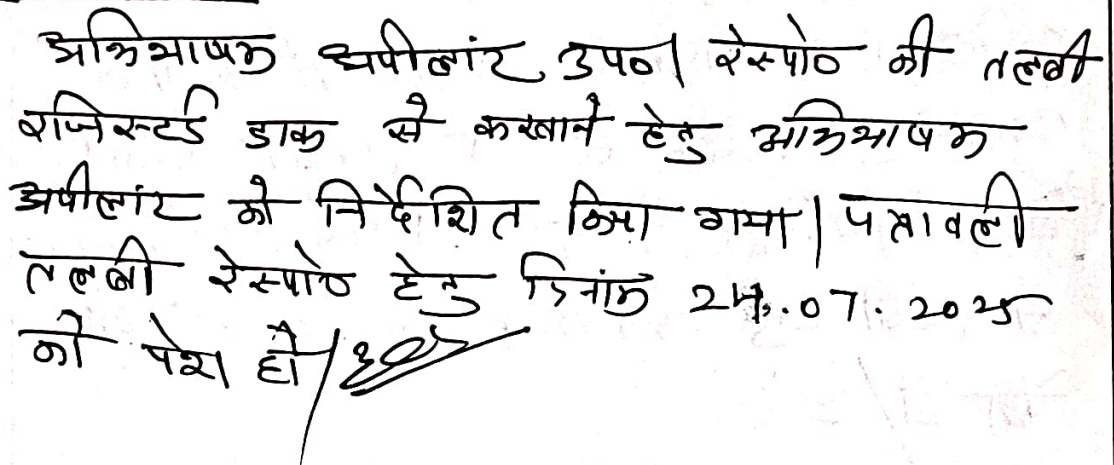 अभिभाषक अपीलांट उप०। रेस्पो० की तलबी
रजिस्टर्ड डाक से करवाने हेतु अभिभाषक
अपीलांट को निर्देशित किया गया। पत्रावली
तलबी रेस्पो० हेतु दिनांक 24.07.2025
को पेश हो।